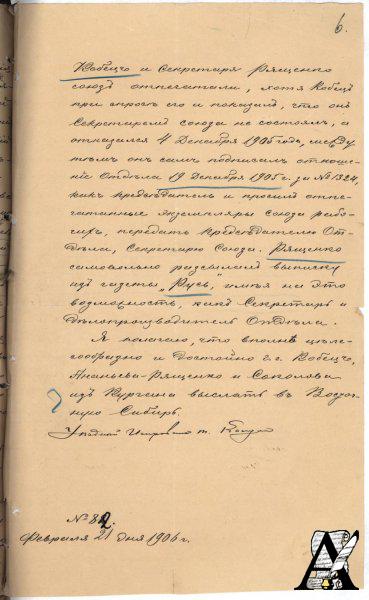 6.
Кобецчо и секретаря Рященко
союз отпечатали, хотя Кобецч
при опросе его и показал, что онъ
Секретаремъ союза не состоялъ, а
отказался 4 Декабря 1905 года, между
тѣмъ онъ самъ подписалъ отноше-
ніе Отдѣла 19 Декабря 1905 г. за № 1324,
какъ председатель и просилъ отпе-
чатанные экземпляры Союза рабо-
чихъ, передать председателю От-
дѣла, Секретарю Союза. Рященко
самовольно разсылалъ выписку
изъ газеты „Русь", имѣя на это
возможность, какъ Секретарь и
Дѣлопроизводитель Отдѣла.
Я полагаю, что вполнѣ цѣле-
сообразно и достойно г.г. Кобецчо,
Ананьева-Рященко и Соколова
изъ Кургана выслать въ Восточ-
ную Сибирь.
Уѣздный Исправникъ
№ 82.
Февраля 21 дня 1906 г.